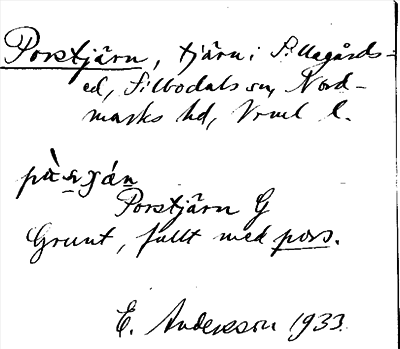 Porstjärn, tjärn i Sillegårds-
ed, Silbodals sn, Nord-
marks hd, Vrml l.
Porstjärn G
Grunt, fullt med pors.
E. Andersson 1933.